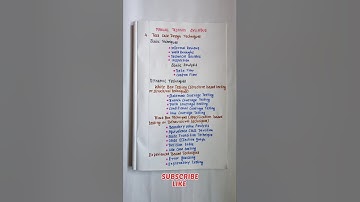 MANUAL TESTING SYLLABUS
Test Case Design Techniques
Static Techniques
Informal Reviews
Walkthroughs
Technical Reviews
Inspection
Static Analysis
Data Flow
Control Flow
Dynamic Techniques
White Box Testing (Structure based testing
or structural techniques)
Statement Coverage Testing
Branch Coverage Testing
Path Coverage Testing
Conditional Coverage Testing
Loop Coverage Testing
Black Box Techniques (Specification based
testing or Behavioural techniques)
Boundary Value Analysis
Equivalence Class Partition
State Transition Technique
Cause Effective Graph
Decision Table
Use Case Testing
Experienced Based Techniques
Error Guessing
Exploratory Testing
SUBSCRIBE
LIKE